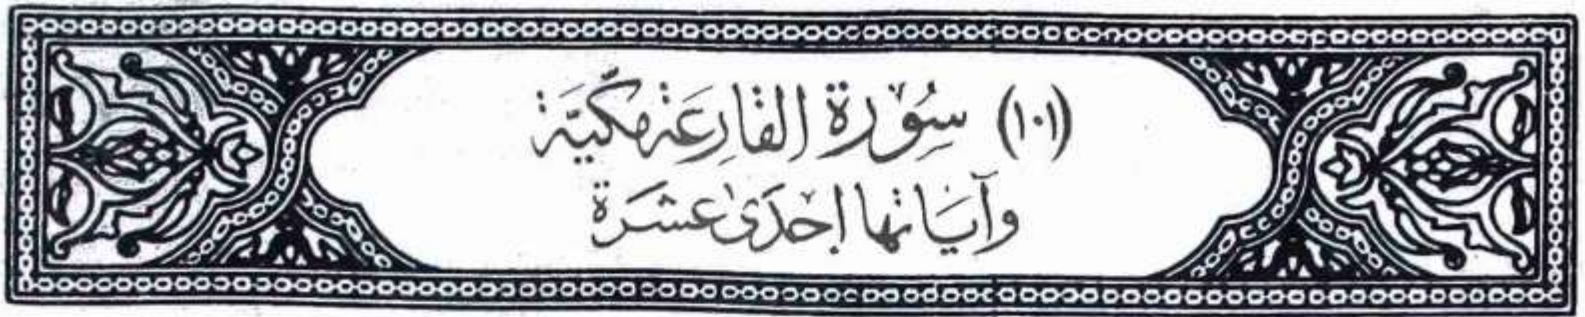 (١٠١) سُوْرَة القَارِعَة مَكِّيَّة
وآيَاتها إحْدَىٰ عشَرَة